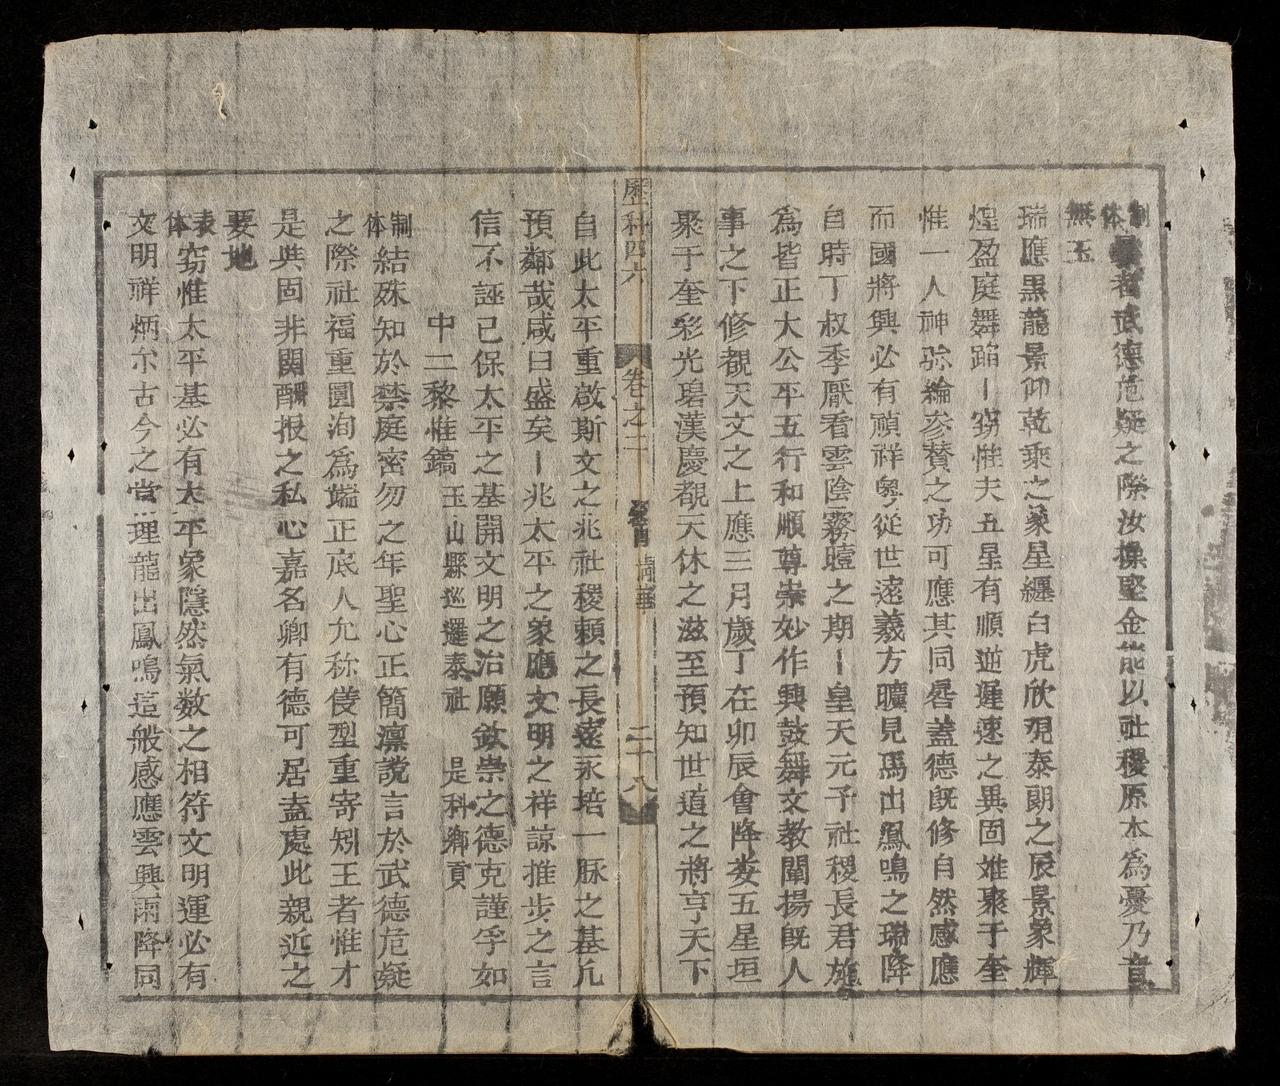 制体 者武德危疑之際汝操堅金能以社稷原本為憂乃音
無玉
瑞應黒龍景仰乾乘之象星纏白虎欣現泰朗之辰景象輝
煌盈庭舞蹈〡窃惟夫五星有順逆遲速之異固难聚于奎
惟一人神弥綸参賛之功可應其同㫷盖德旣修自然感應
而國將興必有禎祥粤從世逺羲方曠見馬出鳳鳴之瑞降
自時丁叔季厭看雲陰霧曀之期〡皇天元予社稷長君施
為皆正大公平五行和順尊崇妙作興鼓舞文教闡揚旣人
事之下修覩天文之上應三月歲丁在卯辰會降娄五星垣
聚于奎彩光碧漢慶覩天休之滋至預知世道之將亨天下
歷科四六
卷之二
二十八
自此太平重啟斯文之兆社稷頼之長逺永培一脉之基凢
預鄰哉咸曰盛矣〡兆太平之象應文明之祥諒推步之言
信不誣已保太平之基開文明之治願敦崇之德克謹孚如
中二黎惟鎬 玉山縣巡邏泰社 是科鄉貢
制体 結殊知於禁庭密勿之年聖心正簡凛讜言於武德危疑
之際社福重圓洵為端正底人允称儀型重寄矧王者惟才
是與固非関酧报之私心嘉名卿有德可居盍處此親近之
要地
表体 窃惟太平基必有太平象隱然氣数之相符文明運必有
文明祥炳尓古今之當理龍出鳳鳴這般感應雲興雨降同